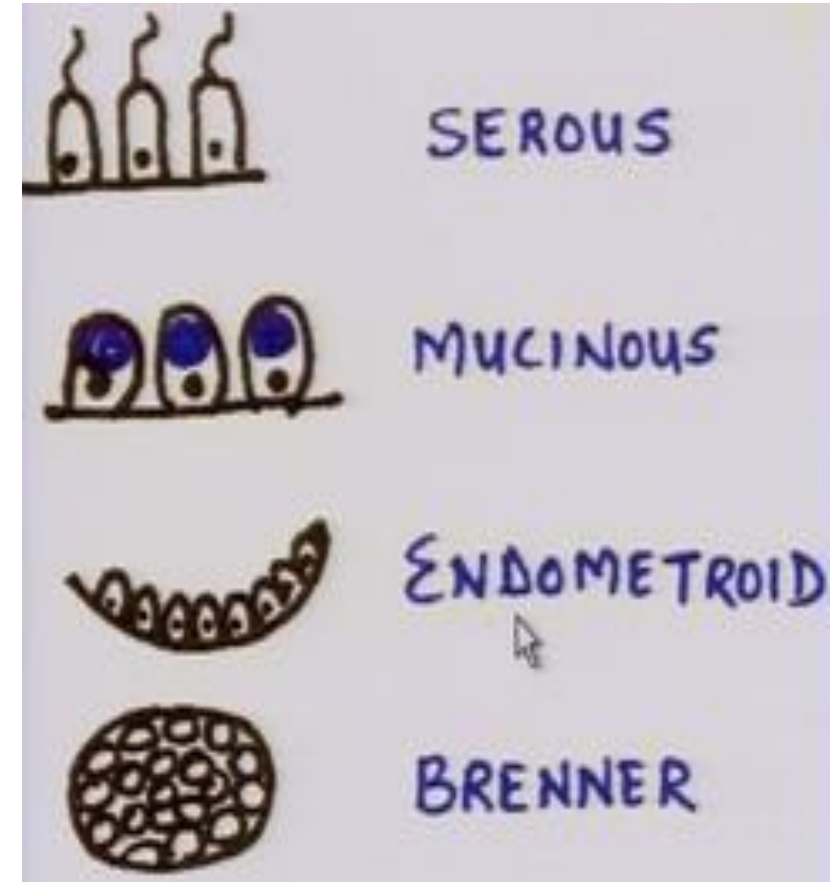 SEROUS
MUCINOUS
ENDOMETROID
BRENNER